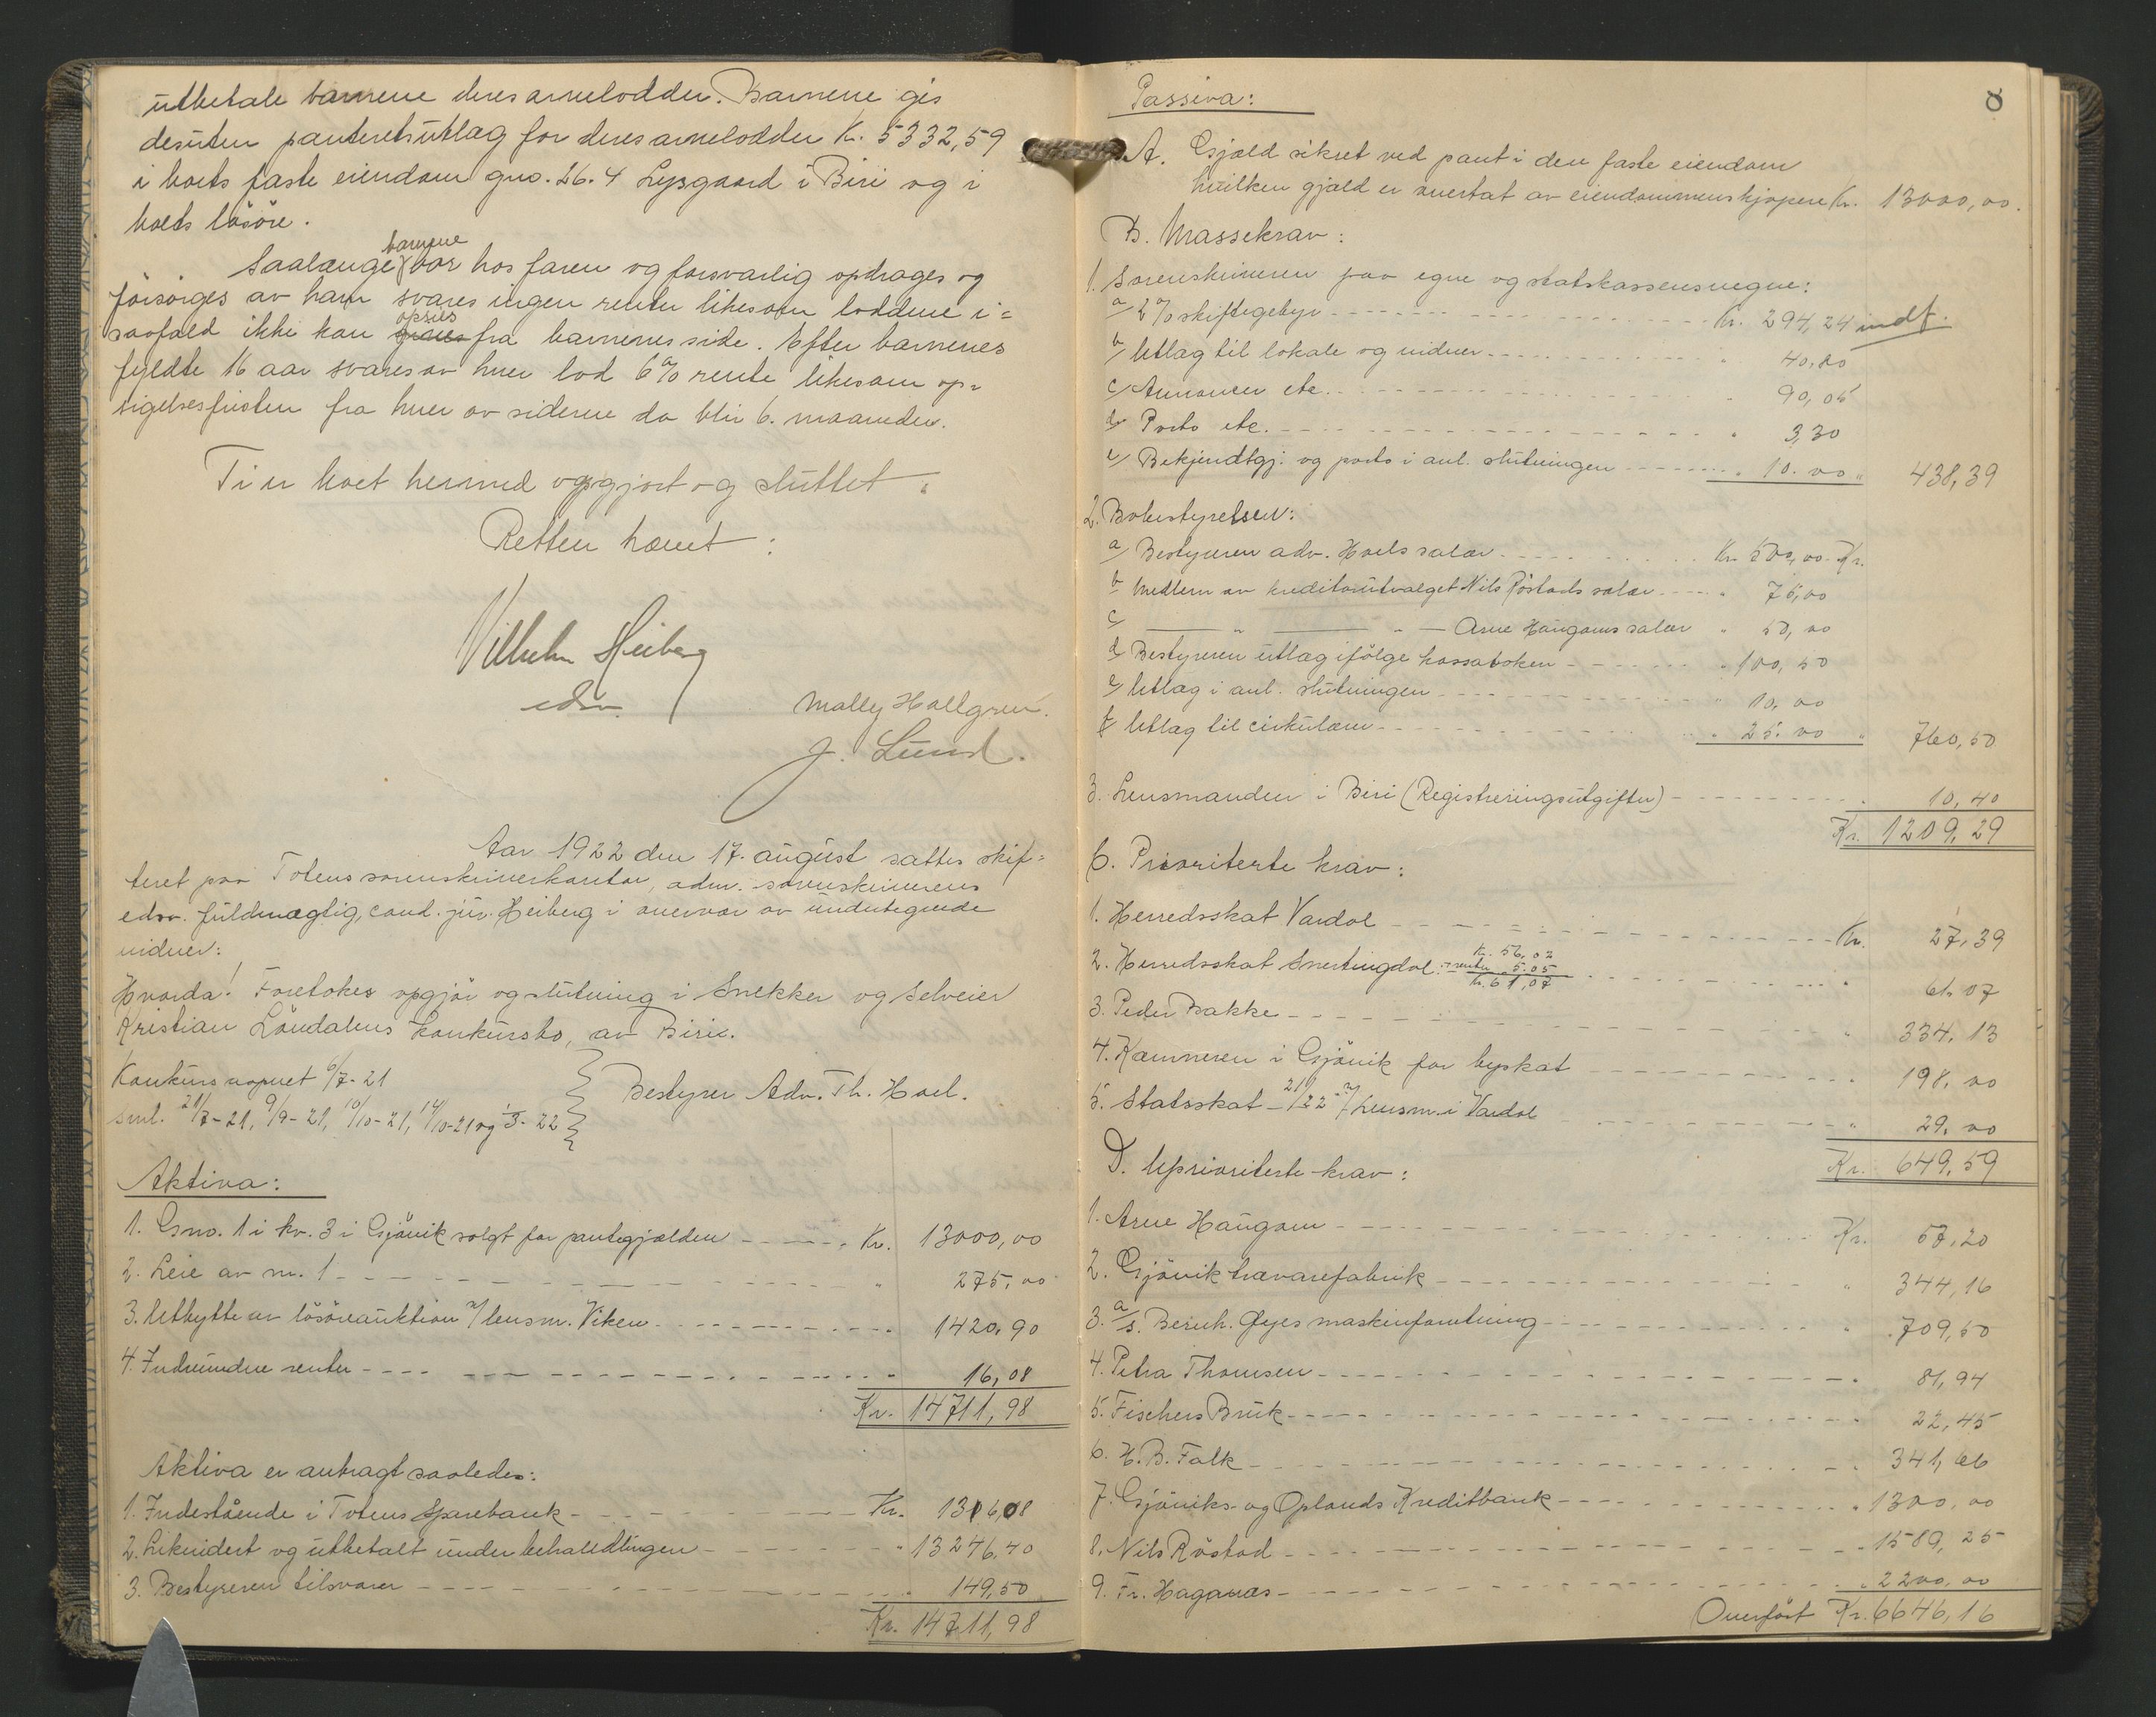 utbetale barnene deres arvelodder. Barnene gis
desuten panteretsutlæg for deres arvelodder Kr. 5332,59
i boets faste eiendom gno. 26.4 Lysgaard i Biri og i
boets løsøre.
Saalænge barnene bor hos faren og forsvarlig opdrages og
forsørges av ham svares ingen renter likesom loddene i=
saafald ikke kan opsies fra barnenes side. Efter barnenes
fyldte 16 aar svares av hver lod 6% rente likesom op=
sigelsesfristen fra hver av siderne da blir 6. maaneder.
Ti er boet hermed opgjort og sluttet.
Retten hævet:
Vilhelm Heiberg
edsv.
Molly Hallgren.
J. Lund.
Aar 1922 den 17. august sattes skif=
teret paa Totens sorenskriverkontor, adm. sorenskriverens
edsv. fuldmægtig, cand. jur. Heiberg i overvær av undertegnede
vidner:
Hvorda! Foretokes opgjør og slutning i Snekker og Selveier
Kristian Løvdalens konkursbo, av Biri.
Konkurs aapnet 6/7-21
sml. 21/7-21, 9/9-21, 10/10-21, 14/10-21 og 1/3-22
Bestyrer Adv. Th. Hoel.
Aktiva:
1. Gno. 1 i kv. 3 i Gjøvik solgt for pantegjælden Kr. 13000,00
2. Leie av nr. 1 " 275,00
3. Utbytte av løsøreauktion v/ lensm. Viken 1420,90
4. Indvundne renter 16,08
Kr. 14711,98
Aktiva er anbragt saaledes:
1. Indestående i Totens Sparebank Kr. 1316,08
2. Likvidert og utbetalt under behandlingen " 13246,40
3. Bestyreren tilsvarer 149,50
Kr. 14711,98
8
Passiva:
A. Gjæld sikret ved pant i den faste eiendom
hvilken gjæld er overtat av eiendommens kjøpere Kr. 13000,00.
B. Massekrav:
1. Sorenskriveren paa egne og statskassens vegne:
a/ 2% skiftegebyr Kr. 294,24 indf.
b/ Utlæg til lokale og vidner " 40,80
c/ Annoncer etc. " 90,05
d/ Porto etc. " 3,30
e/ Bekjendtgj. og porto i anl. slutningen " 10.00 " 438,39
2. Bobestyrelsen:
a/ Bestyreren adv. Hoels salær Kr. 500,00. Kr.
b/ Medlem av kreditorutvalget Nils Røstads salær " 75,00
c/ " " Arne Haugoms salær " 50,00
d/ Bestyreren utlæg ifølge kassaboken " 100,50
e/ Utlæg i anl. slutningen " 10,00
f/ Utlæg til cirkulærer " 25.00 " 760,50
3. Lensmanden i Biri (Registreringsutgifter) " 10,40
Kr. 1209,29
C. Prioriterte krav:
1. Herredsskat Vardal Kr. 27,39
2. Herredsskat Snertingdal Kr. 56,02
+ renter " 5.05
Kr. 61,07 " 61,07
3. Peder Bakke " 334,13
4. Kæmneren i Gjøvik for byskat 198,00
5. Statsskat 21/22 v/ Lensm. i Vardal " 29,00
Kr. 649,59
D. Uprioriterte krav:
1. Arne Haugom Kr. 57,20
2. Gjøvik trævarefabrik " 344,16
3. a/s. Bernh. Øyes maskinforretning " 709,50
4. Petra Thomsen " 81,94
5. Fischers Bruk " 22,45
6. H.B. Falk " 341,66
7. Gjøviks- og Oplands Kreditbank " 1300,00
8. Nils Røstad " 1589,25
9. Fr. Haganæs " 2200,00
Overført Kr. 6646,16